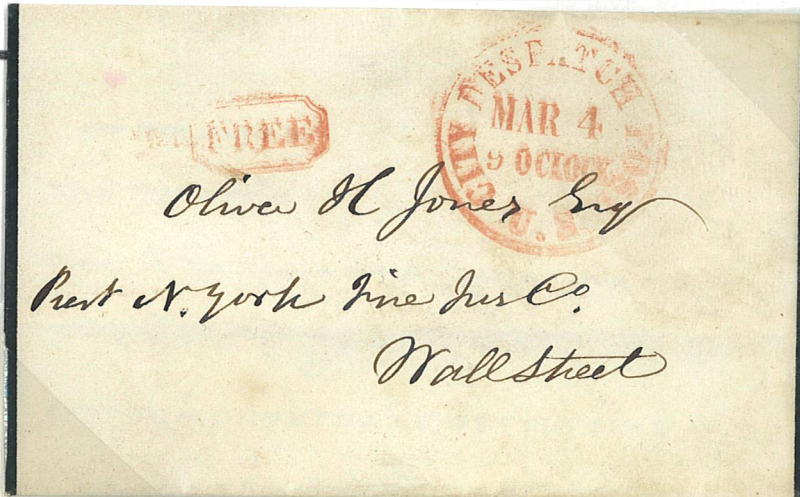 FREE
U.S. CITY DESPATCH POST
MAR 4
9 OCLOCK
Oliver H Jones Esq
Prest N. York Fire Ins Co.
Wall Street